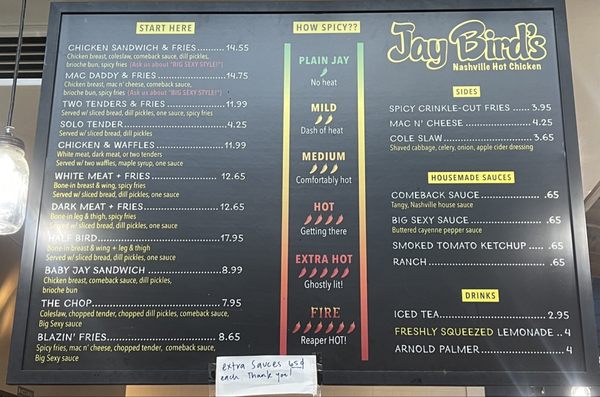 START HERE
CHICKEN SANDWICH & FRIES.......... 14.55
Chicken breast, coleslaw, comeback sauce, dill pickles,
brioche bun, spicy fries (Ask us about "BIG SEXY STYLE!")
MAC DADDY & FRIES.................... 14.75
Chicken breast, mac n' cheese, comeback sauce,
brioche bun, spicy fries (Ask us about "BIG SEXY STYLE!")
TWO TENDERS & FRIES.................. 11.99
Served w/ sliced bread, dill pickles, one sauce, spicy fries
SOLO TENDER............................ 4.25
Served w/ sliced bread, dill pickles
CHICKEN & WAFFLES.................... 11.99
White meat, dark meat, or two tenders
Served w/ two waffles, maple syrup, one sauce
WHITE MEAT + FRIES.................. 12.65
Bone-in breast & wing, spicy fries
Served w/ sliced bread, dill pickles, one sauce
DARK MEAT + FRIES.................... 12.65
Bone-in leg & thigh, spicy fries
Served w/ sliced bread, dill pickles, one sauce
HALF BIRD.............................. 17.95
Bone-in breast & wing + leg & thigh
Served w/ sliced bread, dill pickles, one sauce
BABY JAY SANDWICH.................... 8.99
Chicken breast, comeback sauce, dill pickles,
brioche bun
THE CHOP.............................. 7.95
Coleslaw, chopped tender, chopped dill pickles, comeback sauce,
Big Sexy sauce
BLAZIN' FRIES.......................... 8.65
Spicy fries, mac n' cheese, chopped tender, comeback sauce,
Big Sexy sauce
HOW SPICY??
PLAIN JAY
No heat
MILD
Dash of heat
MEDIUM
Comfortably hot
HOT
Getting there
EXTRA HOT
Ghostly lit!
FIRE
Reaper HOT!
extra sauces 65¢
each Thank you!
Jay Bird's
Nashville Hot Chicken
SIDES
SPICY CRINKLE-CUT FRIES ..... 3.95
MAC N' CHEESE .................. 4.25
COLE SLAW........................ 3.65
Shaved cabbage, celery, onion, apple cider dressing
HOUSEMADE SAUCES
COMEBACK SAUCE ................ .65
Tangy, Nashville house sauce
BIG SEXY SAUCE .................. .65
Buttered cayenne pepper sauce
SMOKED TOMATO KETCHUP ..... .65
RANCH ............................ .65
DRINKS
ICED TEA.......................... 2.95
FRESHLY SQUEEZED LEMONADE .. 4
ARNOLD PALMER .................. 4